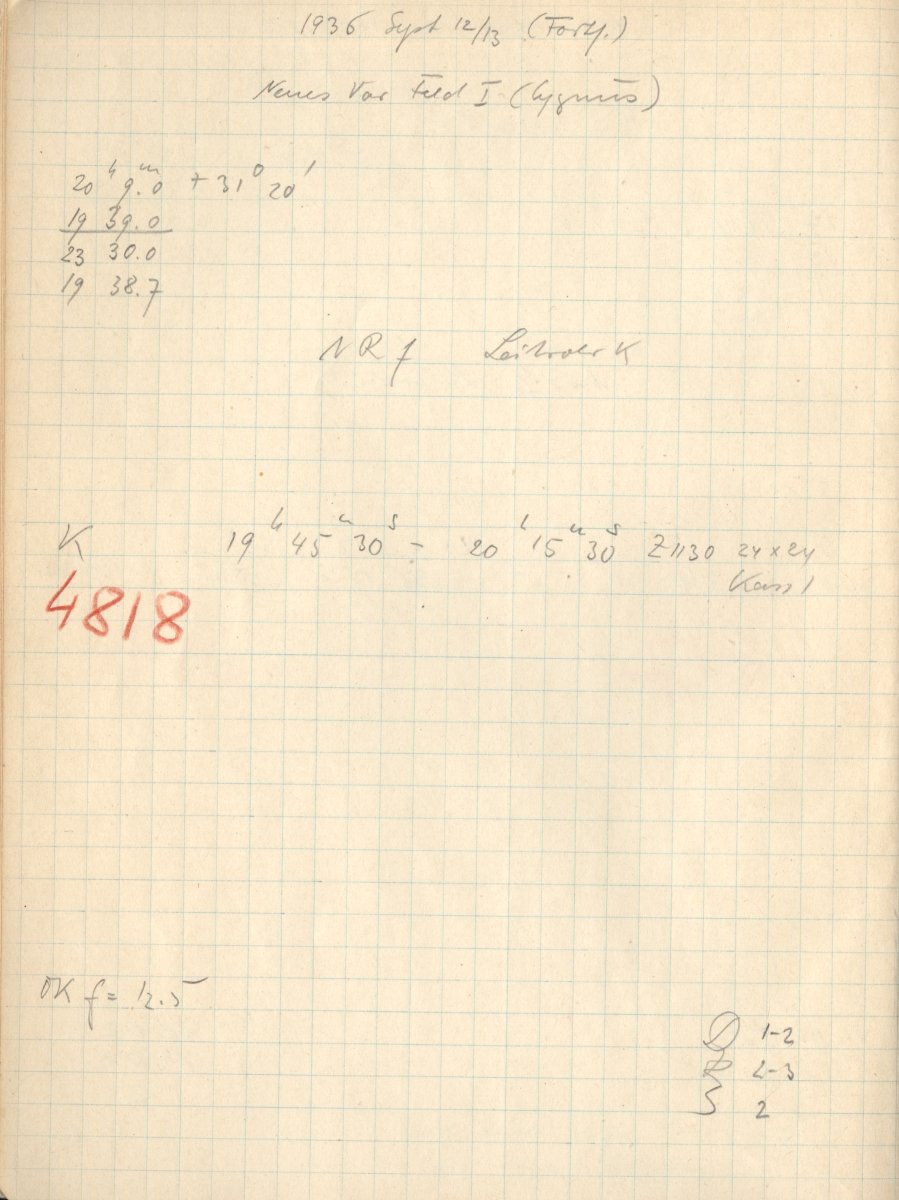 1936 Sept 12/13 (Forts.)
Neues Var Feld I (Cygnus)
20ʰ 9.ᵐ0 + 31° 20'
19 39.0
23 30.0
19 38.7
NR f Leitrohr K
K 19ʰ 45ᵐ 30ˢ - 20ʰ 15ᵐ 30ˢ Z1130 24 x 24
Kass 1
4818
OK f = 12.5
D 1-2
R 2-3
S 2